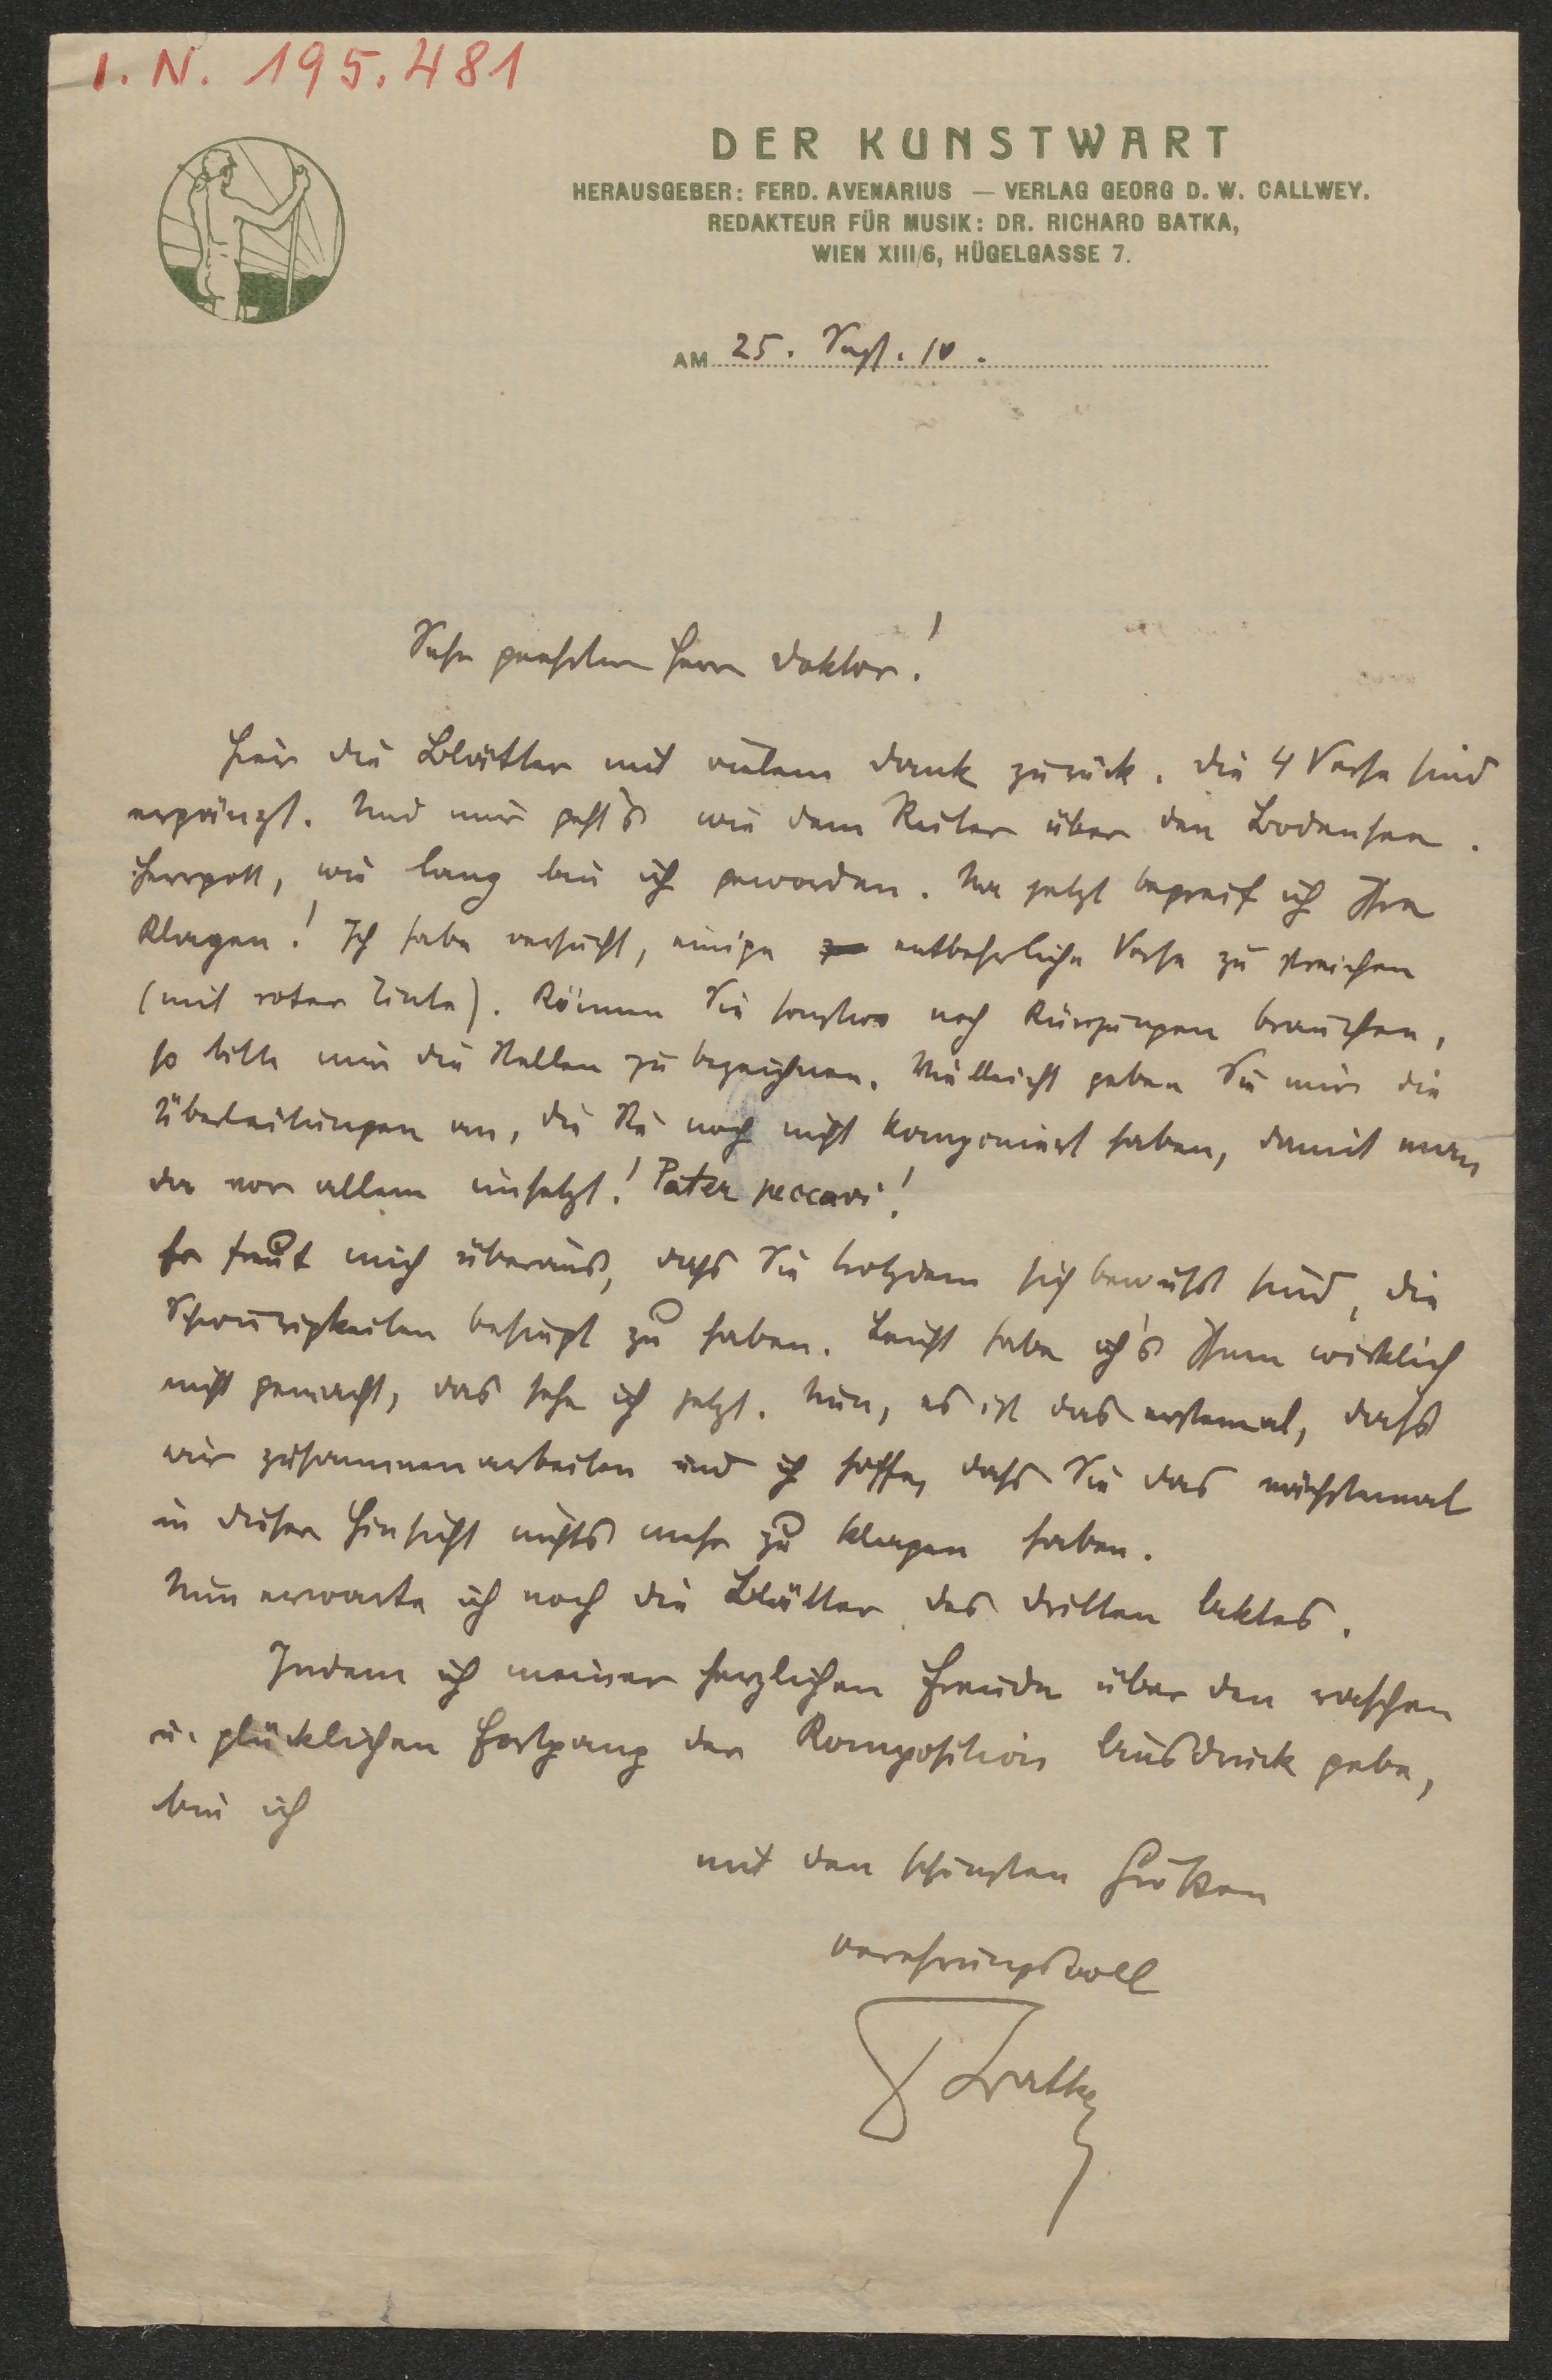 I. N. 195.481
DER KUNSTWART
HERAUSGEBER: FERD. AVENARIUS — VERLAG GEORG D. W. CALLWEY.
REDAKTEUR FÜR MUSIK: DR. RICHARD BATKA,
WIEN XIII/6, HÜGELGASSE 7.
AM 25. Sept. 10.
Sehr geehrter Herr Doktor!
Hier die Blätter mit vielem Dank zurück. Die 4 Verse sind
ergänzt. Und mir geht's wie dem Reiter über den Bodensee.
Herrgott, wie lang bin ich geworden. Na jetzt begreif ich Ihre
Klagen! Ich habe versucht, einige entbehrliche Verse zu streichen
(mit roter Tinte). Können Sie sonstwo noch Kürzungen brauchen,
so bitte mir die Stellen zu bezeichnen. Vielleicht geben Sie mir die
Überleitungen an, die Sie noch nicht komponiert haben, damit man
da vor allem einsetzt! Pater peccavi!
Es freut mich überaus, dass Sie trotzdem sich bewußt sind, die
Schwierigkeiten besiegt zu haben. Leicht habe ich's Ihnen wirklich
nicht gemacht, das sehe ich jetzt. Nun, es ist das erstemal, dass
wir zusammenarbeiten und ich hoffe, dass Sie das nächstemal
in dieser Hinsicht nichts mehr zu klagen haben.
Nun erwarte ich noch die Blätter des dritten Aktes.
Indem ich meiner herzlichen Freude über den raschen
u. glücklichen Fortgang der Komposition Ausdruck gebe,
bin ich
mit den schönsten Grüßen
verehrungsvoll
Batka